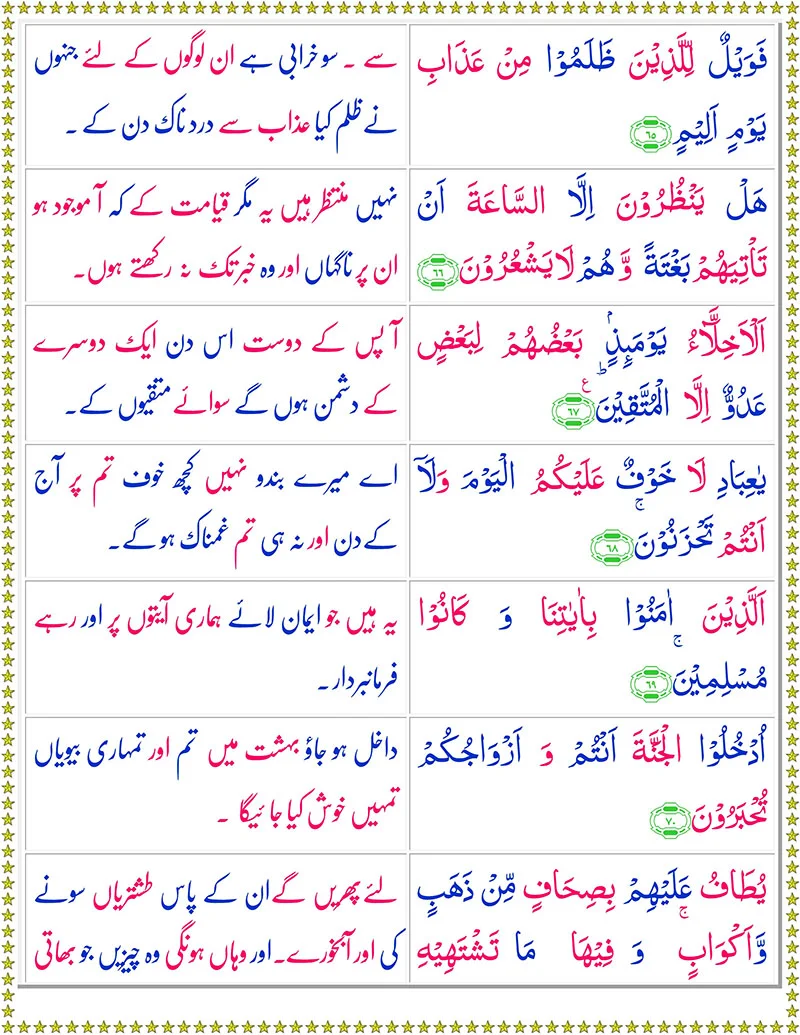 فَوَيْلٌ لِّلَّذِيْنَ ظَلَمُوْا مِنْ عَذَابِ
يَوْمٍ اَلِيْمٍ ٦٥
سے ۔ سو خرابی ہے ان لوگوں کے لئے جنہوں
نے ظلم کیا عذاب سے درد ناک دن کے ۔
هَلْ يَنْظُرُوْنَ اِلَّا السَّاعَةَ اَنْ
تَاْتِيَهُمْ بَغْتَةً وَّ هُمْ لَا يَشْعُرُوْنَ ٦٦
نہیں منتظر ہیں یہ مگر قیامت کے کہ آ موجود ہو
ان پر ناگہاں اور وہ خبر تک نہ رکھتے ہوں۔
اَلْاَخِلَّآءُ يَوْمَىِٕذٍۭ بَعْضُهُمْ لِبَعْضٍ
عَدُوٌّ اِلَّا الْمُتَّقِيْنَ ؕ ع ٦٧
آپس کے دوست اس دن ایک دوسرے
کے دشمن ہوں گے سوائے متقیوں کے۔
يٰعِبَادِ لَا خَوْفٌ عَلَيْكُمُ الْيَوْمَ وَلَاۤ
اَنْتُمْ تَحْزَنُوْنَ ۚ ٦٨
اے میرے بندو نہیں کچھ خوف تم پر آج
کے دن اور نہ ہی تم غمناک ہو گے۔
اَلَّذِيْنَ اٰمَنُوْا بِاٰيٰتِنَا وَ كَانُوْا
مُسْلِمِيْنَ ۚ ٦٩
یہ ہیں جو ایمان لائے ہماری آیتوں پر اور رہے
فرمانبردار۔
اُدْخُلُوا الْجَنَّةَ اَنْتُمْ وَ اَزْوَاجُكُمْ
تُحْبَرُوْنَ ٧٠
داخل ہو جاؤ بہشت میں تم اور تمہاری بیویاں
تمہیں خوش کیا جائیگا ۔
يُطَافُ عَلَيْهِمْ بِصِحَافٍ مِّنْ ذَهَبٍ
وَّاَكْوَابٍ ۚ وَ فِيْهَا مَا تَشْتَهِيْهِ
لئے پھریں گے ان کے پاس طشتریاں سونے
کی اور آبخورے۔ اور وہاں ہونگی وہ چیزیں جو بھاتی